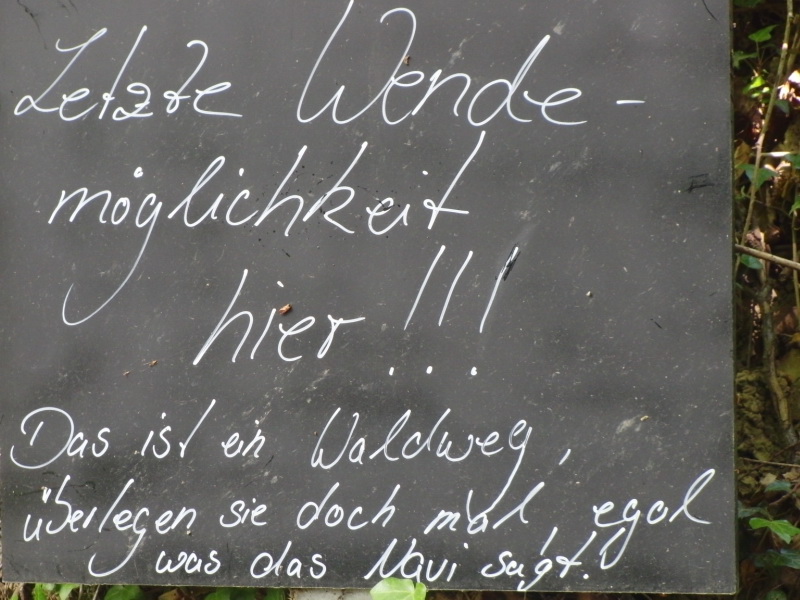 Letzte Wende-
möglichkeit
hier!!!
Das ist ein Waldweg,
überlegen sie doch mal, egal
was das Navi sagt!